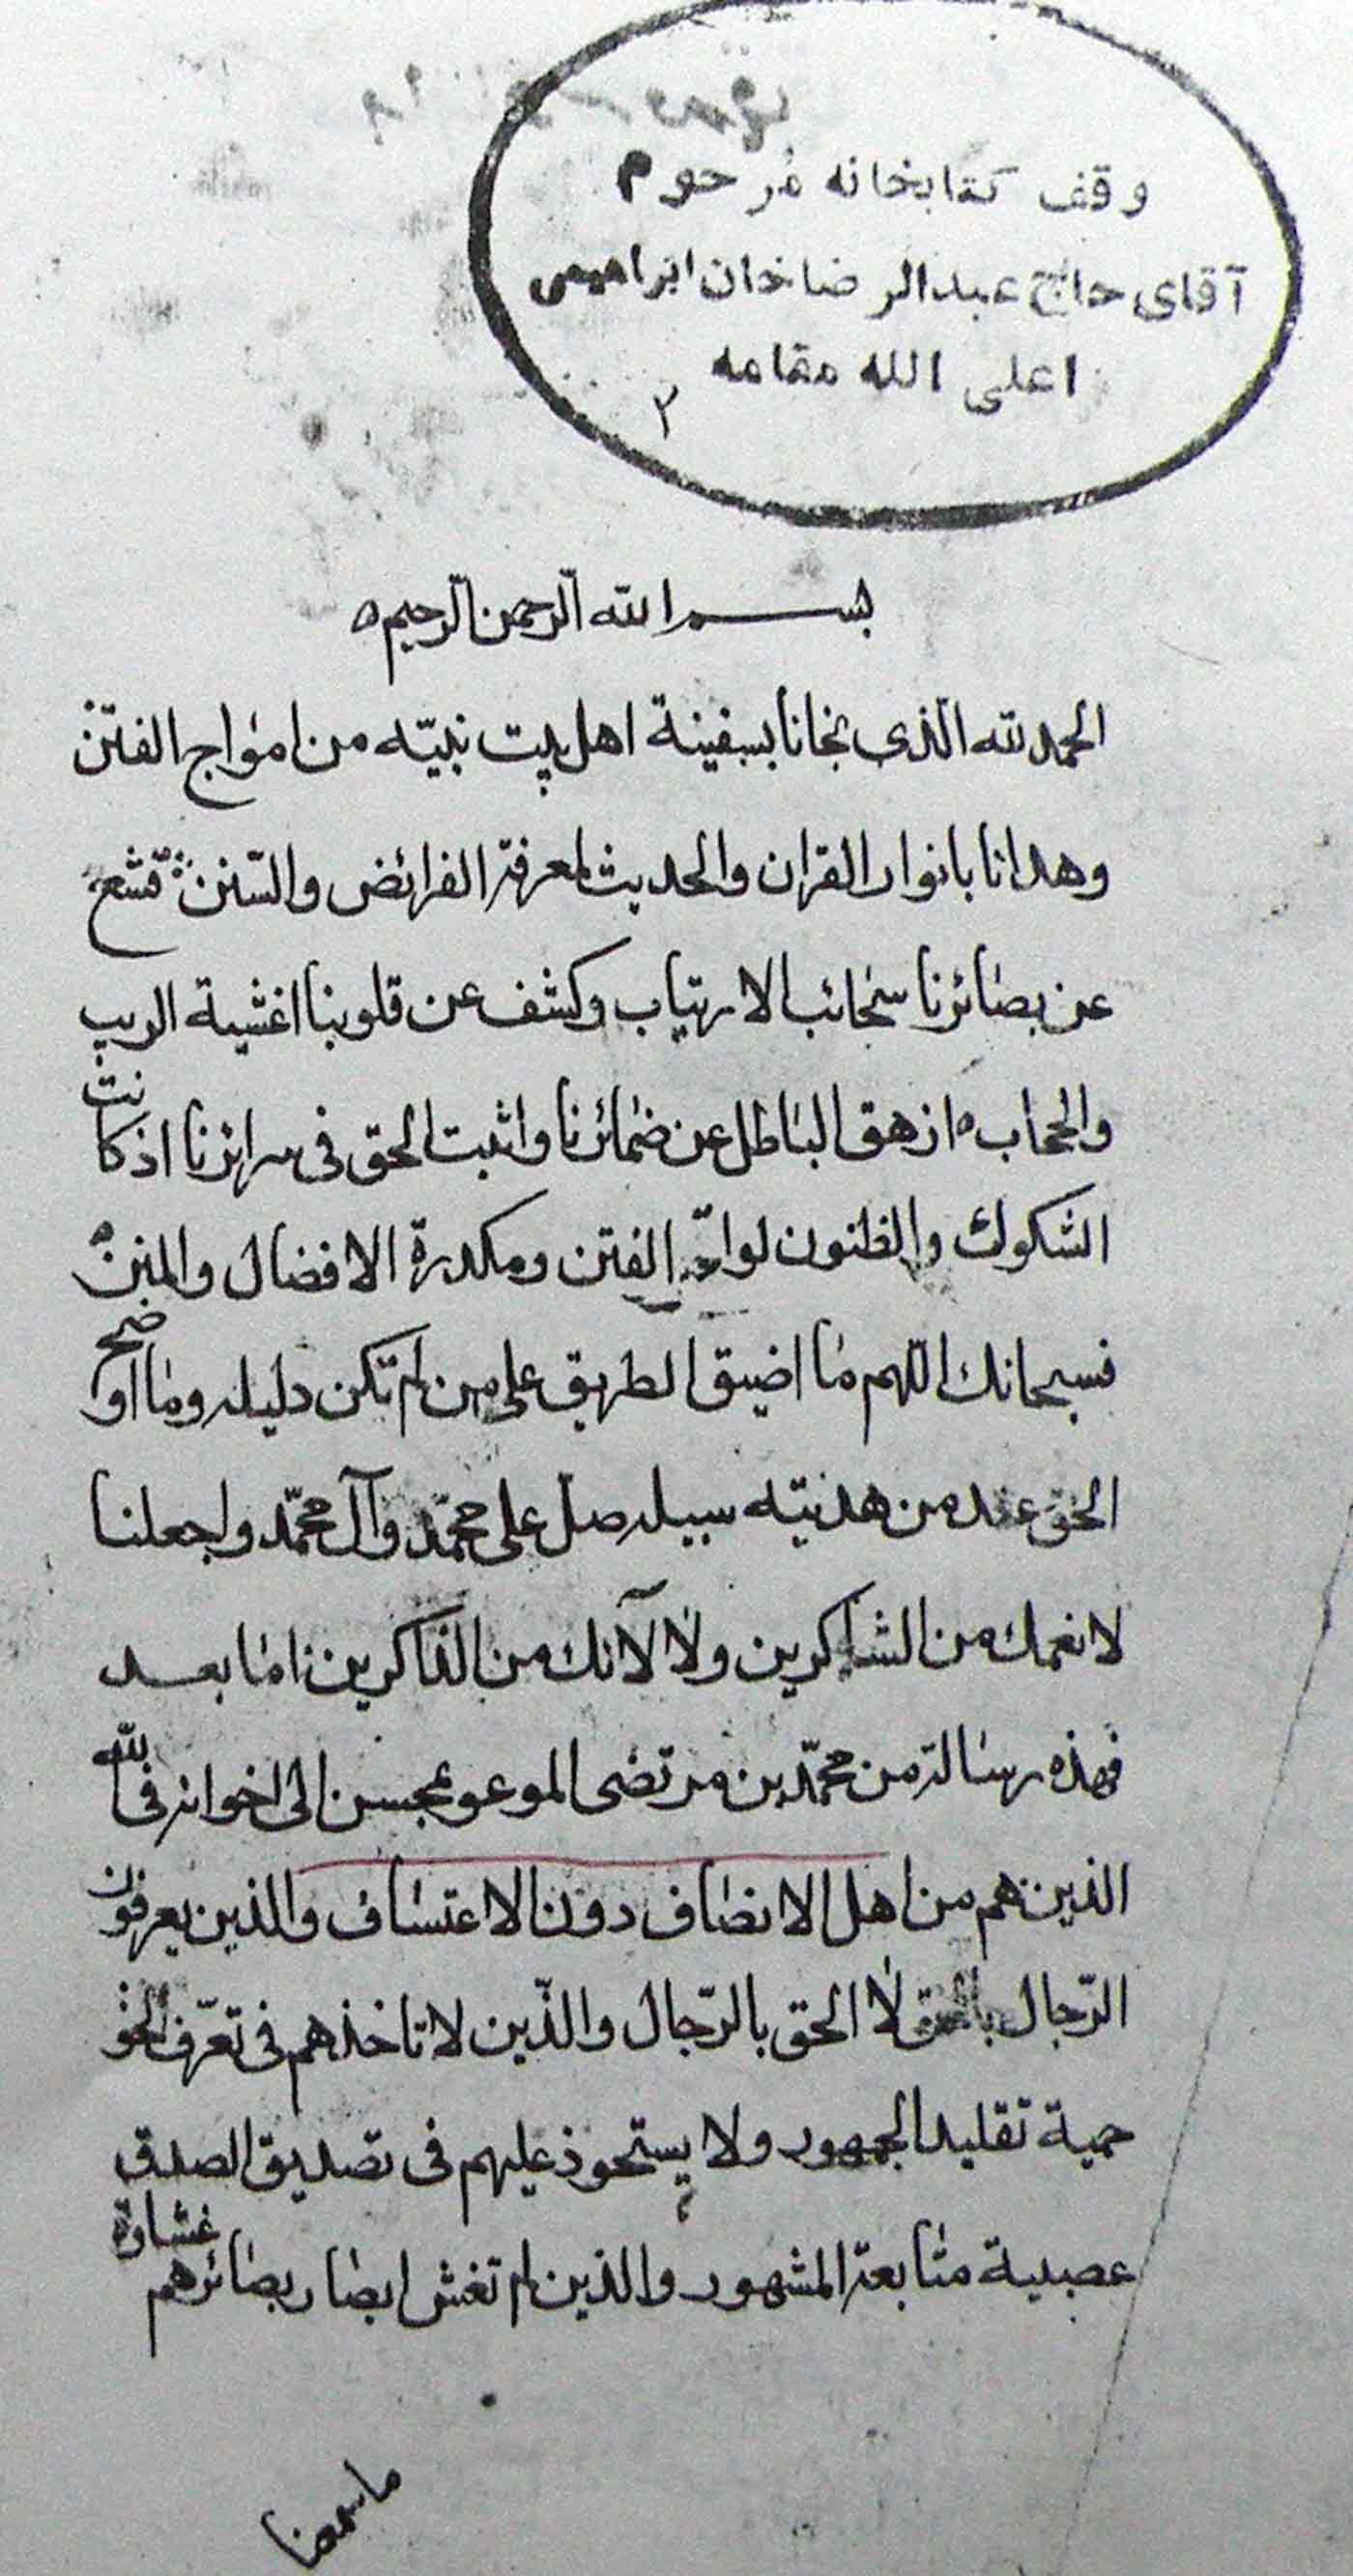 وقف كتابخانه مرحوم
آقای حاج عبدالرضا خان ابراهیمی
اعلی الله مقامه
۲
بسم الله الرحمن الرحيم
الحمد لله الّذى نجانا بسفينة اهل بيت نبيّه من امواج الفتن
وهدانا بانوار القران والحديث لمعرفة الفرائض والسّنن قشع
عن بصائرنا سحائب الارتياب وكشف عن قلوبنا اغشية الريب
والحجاب ازهق الباطل عن ضمائرنا واثبت الحق فى سرائرنا اذ كانت
الشكوك والظنون لواقح الفتن ومكدرة الافضال والمنن
فسبحانك اللهم ما اضيق الطريق على من لم تكن دليله وما اوضح
الحق عند من هديته سبيله صل على محمّد وآل محمّد واجعلنا
لانعمك من الشاكرين ولالآئك من الذاكرين اما بعد
فهذه رسالة من محمّد بن مرتضى المدعو بمحسن الى اخوانه فى الله
الذين هم من اهل الانصاف دون الاعتساف والذين يعرفون
الرّجال بالحق لا الحق بالرّجال والذّين لا تاخذهم فى تعرّف الحق
حمية تقليد الجمهور ولا يستحوذ عليهم فى تصديق الصدق
عصبية متابعة المشهور والذين لم تغش ابصار بصائرهم غشاوة
ما سمعنا